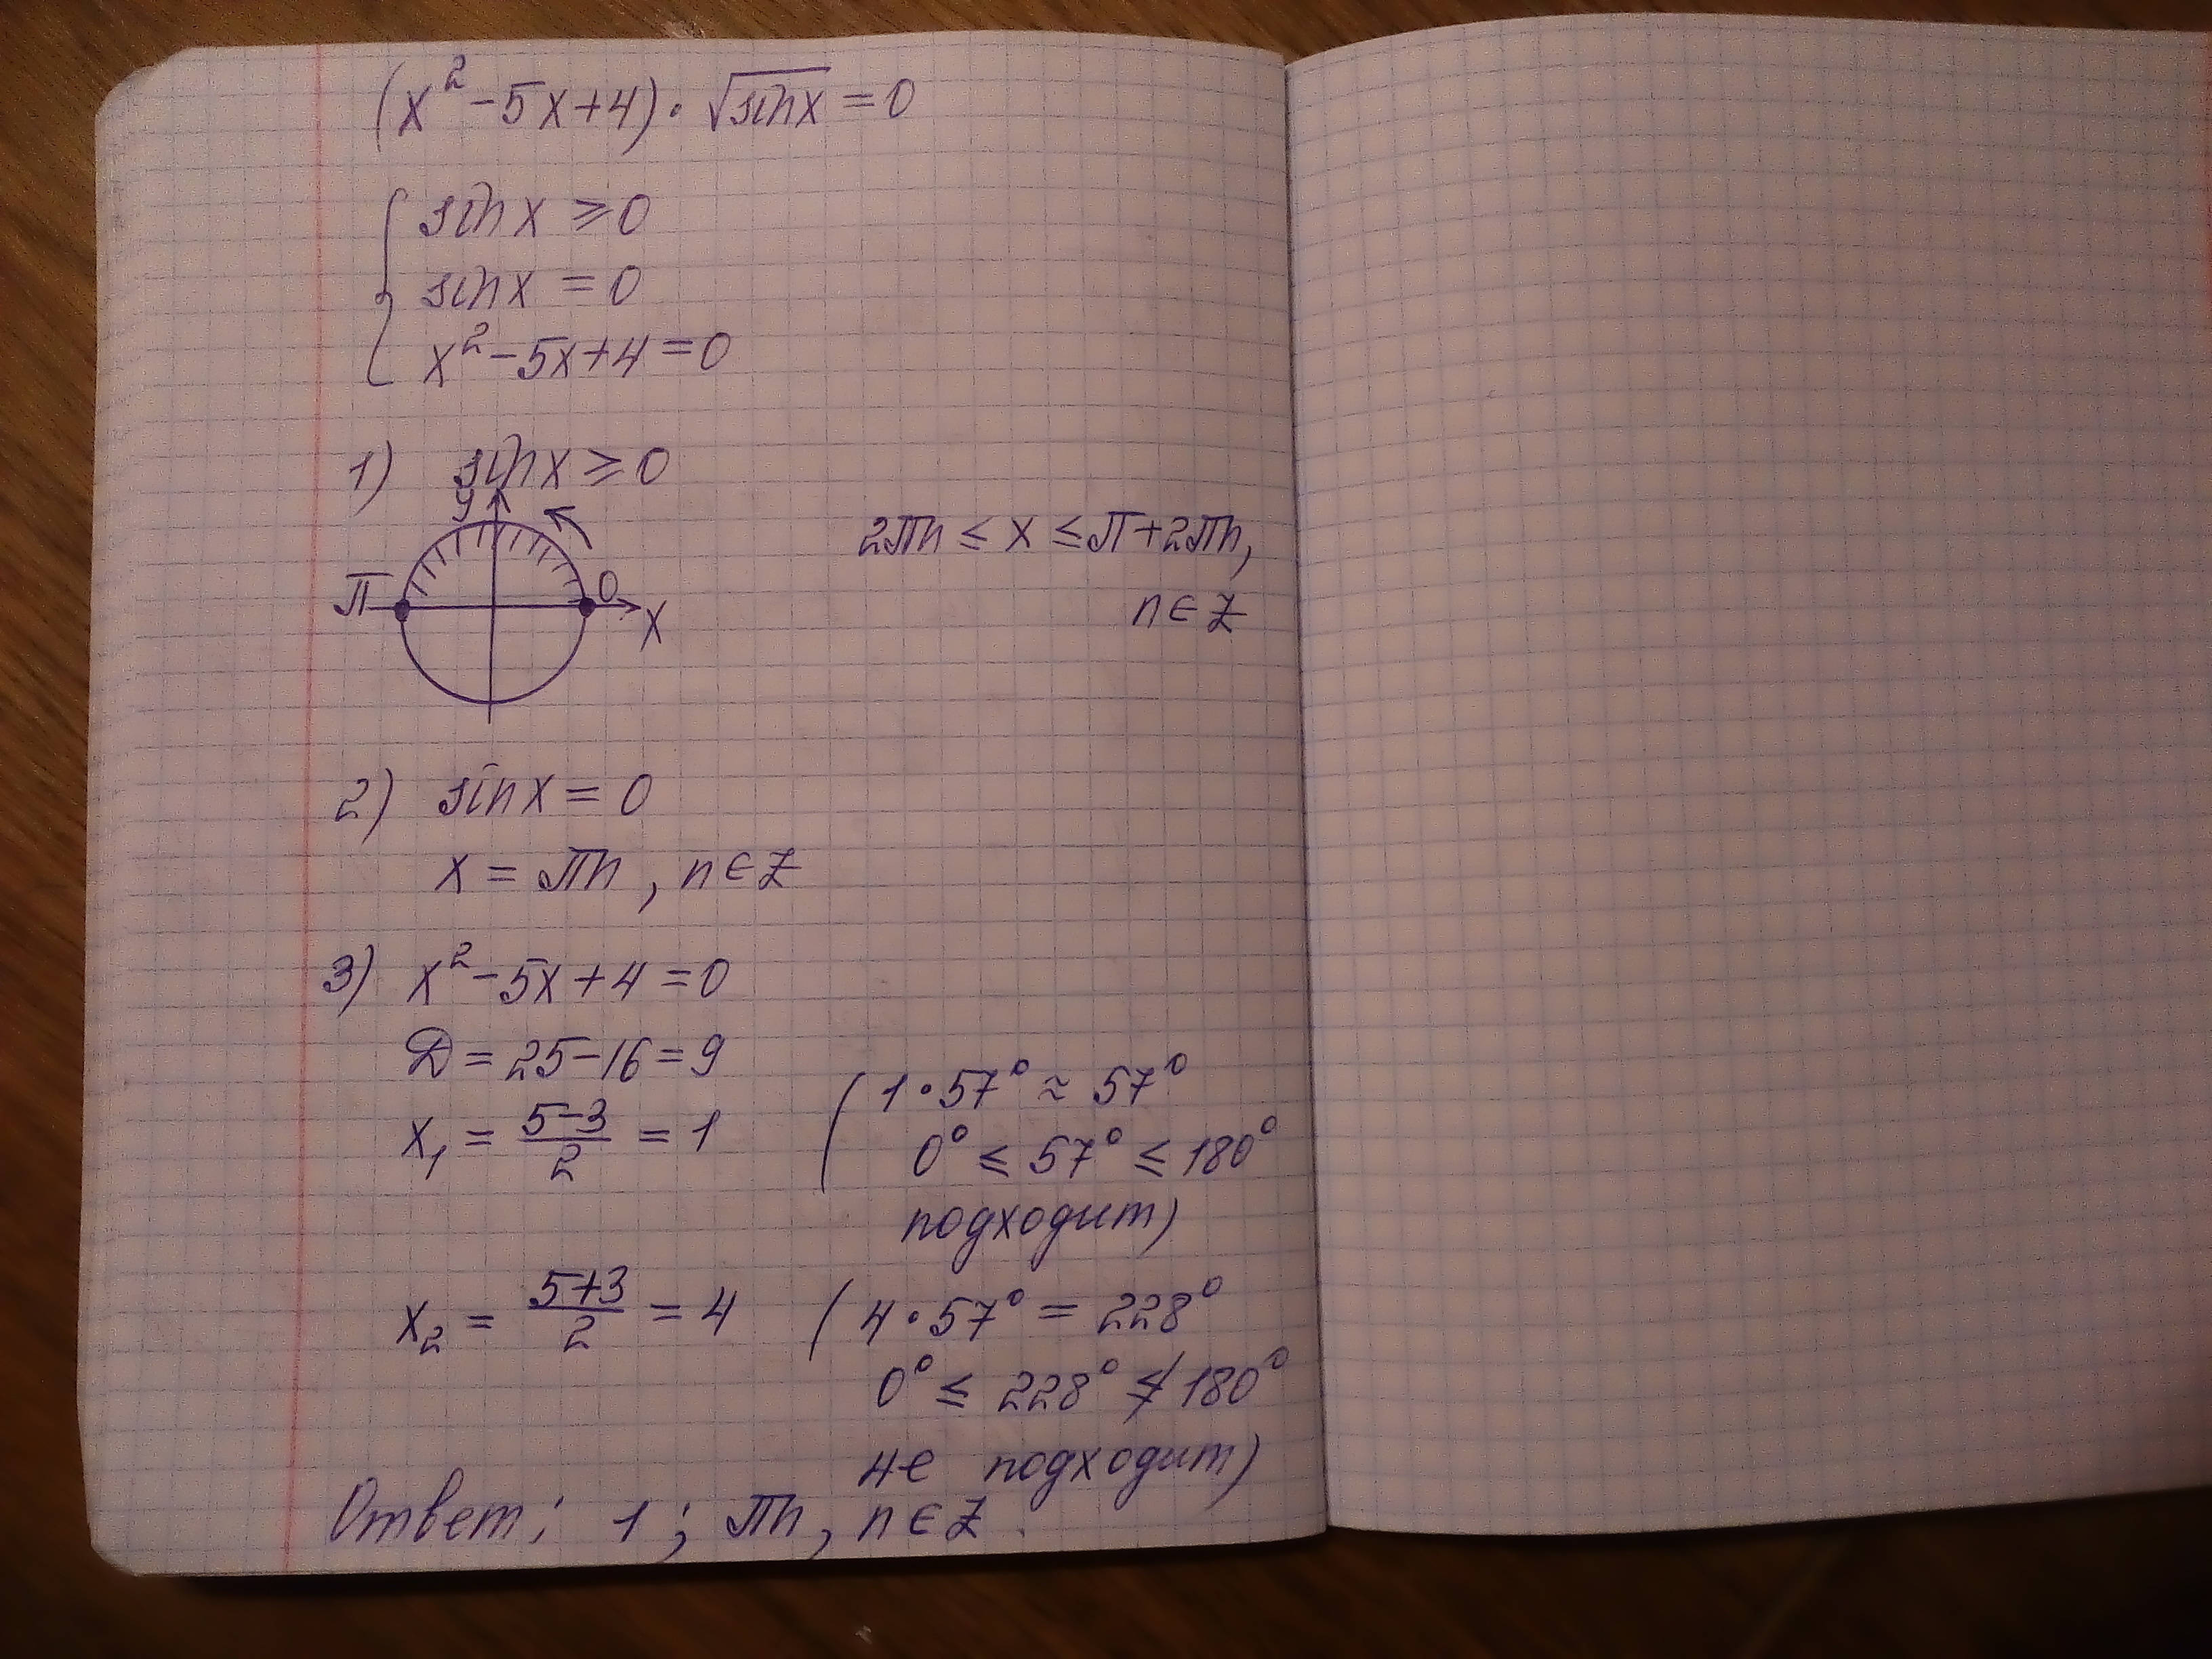 (x² - 5x + 4) · √sinx = 0
{ sinx ⩾ 0
sinx = 0
x² - 5x + 4 = 0
1) sinx ⩾ 0
y
π 0
x
2πn ≤ x ≤ π + 2πn,
n ∈ Z
2) sinx = 0
x = πn, n ∈ Z
3) x² - 5x + 4 = 0
D = 25 - 16 = 9
x₁ = (5-3)/2 = 1 (1 · 57° ≈ 57°
0° ≤ 57° ≤ 180°
подходит)
x₂ = (5+3)/2 = 4 (4 · 57° = 228°
0° ≤ 228° ≰ 180°
не подходит)
Ответ: 1; πn, n ∈ Z.